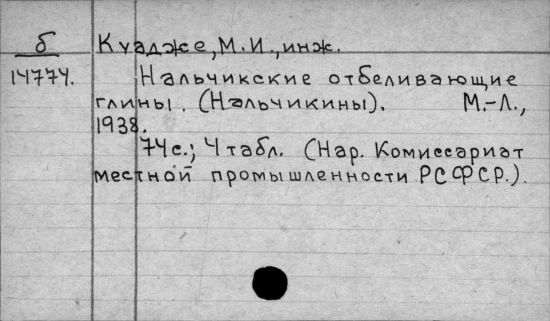 б Куадже, М. И., инж.
14774. Нальчикские отбеливающие
глины. (Нальчикины). М.-Л.,
1938.
74 с.; 4 табл. (Нар. Комиссариат
местной промышленности РСФСР.).